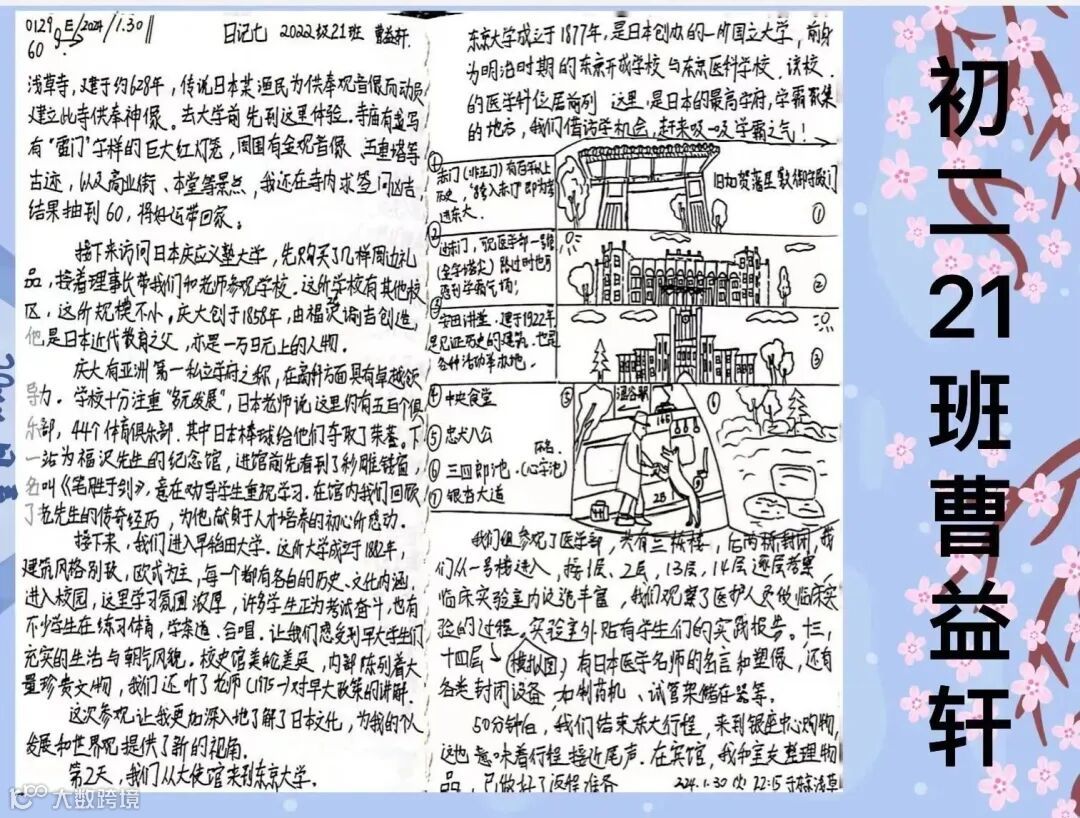 0129
60
2024/1.30
日记七 2022级21班 曹益轩
浅草寺，建于约628年，传说日本某渔民为供奉观音像而动员
建立此寺供奉神像。去大学前先到这里体验。寺庙有写
有“雷门”字样的巨大红灯笼，周围有金观音像、五重塔等
古迹，以及商业街、本堂等景点，我还在寺内求签问凶吉，
结果抽到60，将好运带回家。
接下来访问日本庆应义塾大学，先购买了几样周边礼
品，接着理事长带我们和老师参观学校。这所学校有其他校
区，这所规模不小。庆大创于1858年，由福沢谕吉创造，
他是日本近代教育之父，亦是一万日元上的人物。
庆大有亚洲第一私立学府之称，在商科方面具有卓越领
导力。学校十分注重“多元发展”，日本老师说这里约有五百个俱
乐部，44个体育俱乐部.其中日本棒球给他们夺取了荣誉。下
一站为福沢先生的纪念馆，进馆前先看到了秒雕链窗，
名叫《笔胜于剑》，意在劝导学生重视学习。在馆内我们回顾
了老先生的传奇经历，为他献身于人才培养的初心所感动。
接下来，我们进入早稻田大学。这所大学成立于1882年，
建筑风格别致，欧式为主，每一个都有各自的历史、文化内涵。
进入校园，这里学习氛围浓厚，许多学生正为考试奋斗，也有
不少学生在练习体育，学茶道、合唱.让我们感受到早大学生们
充实的生活与朝气风貌。校史馆美轮美奂，内部陈列着大
量珍贵文物，我们还听了老师(1975→)对早大政策的讲解.
这次参观让我更加深入地了解了日本文化，为我的个人
发展和世界观提供了新的视角。
第2天，我们从大使馆来到东京大学。
东京大学成立于1877年，是日本创办的一所国立大学，前身
为明治时期的东京开成学校与东京医科学校.该校
的医学科位居前列 这里是日本的最高学府，学霸聚集
的地方，我们借访学机会，赶来吸一吸学霸之气！
①
赤门(非正门)有百年以上
历史，“跨入赤门”即为考
进东大.
旧加贺藩屋敷御守殿门
①
②
进赤门，可见医学部一号馆
(金字塔尖)路过时也可
感到学霸气场！
②
③
安田讲堂.建于1922年，
是见证历史的建筑.也是
各种活动举办地。
③
④ 中央食堂
⑤ 忠犬八公
⑥ 三四郎池.(心字池)
⑦ 银杏大道
⑤
涩谷駅
⑥
我们组参观了医学部，共有三栋楼，后两栋封闭，我
们从一号楼进入，按1层、2层，13层，14层逐层考察，
临床实验室内设施丰富，我们观察了医护人员做临床实
验的过程。实验室外贴有学生们的实践报告。十三，
十四层(模拟图)有日本医学名师的名言和塑像，还有
各类封闭设备，如制药机、试管架储存器等。
50分钟后，我们结束东大行程，来到银座中心购物，
这也意味着行程接近尾声.在宾馆，我和室友整理物
品，已做好了返程准备
2024.1.30 22:15 于东京浅草
初二21班曹益轩
大数跨境